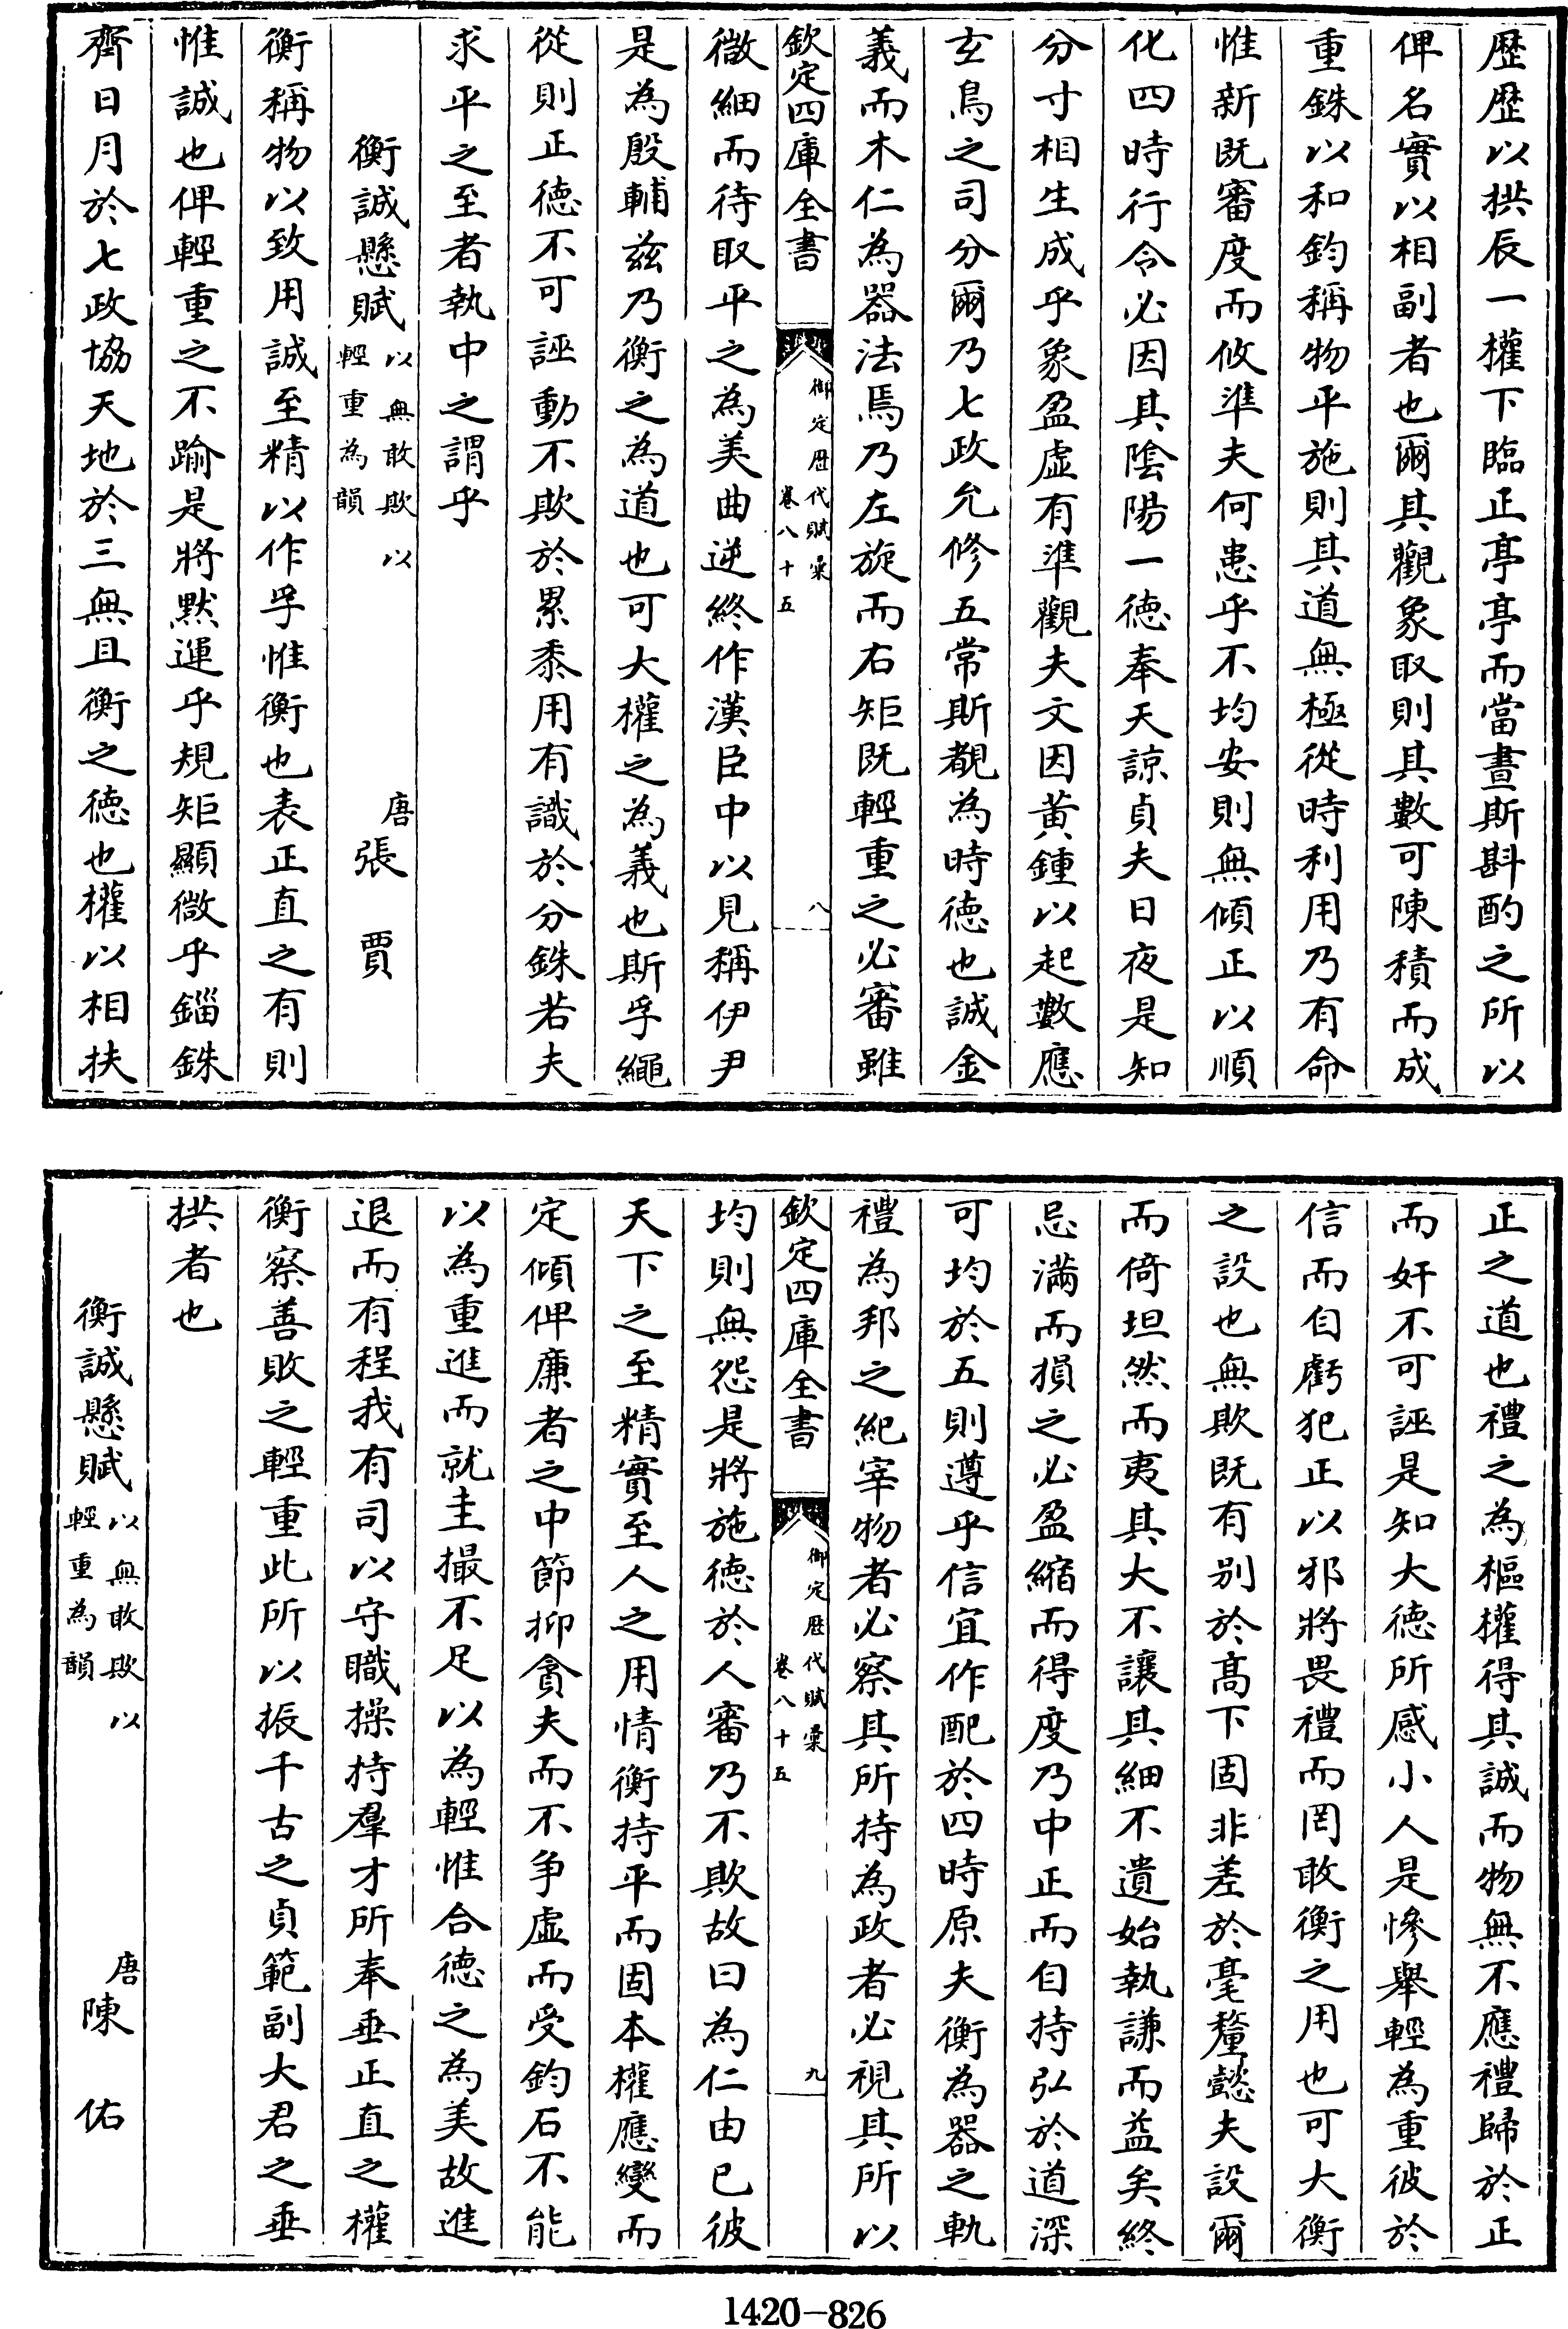 歴歴以拱辰一權下臨正亭亭而當晝斯斟酌之所以
俾名實以相副者也爾其觀象取則其數可陳積而成
重銖以和鈞稱物平施則其道無極從時利用乃有命
惟新既審度而攸準夫何患乎不均安則無傾正以順
化四時行令必因其陰陽一徳奉天諒貞夫日夜是知
分寸相生成乎象盈虚有準觀夫文因黄鍾以起數應
玄鳥之司分爾乃七政允修五常斯覩為時徳也誠金
義而木仁為器法焉乃左旋而右矩既輕重之必審雖
欽定四庫全書
御定歴代賦彙
卷八十五
八
微細而待取平之為美曲逆終作漢臣中以見稱伊尹
是為殷輔兹乃衡之為道也可大權之為義也斯孚繩
從則正徳不可誣動不欺於累黍用有識於分銖若夫
求平之至者執中之謂乎
衡誠懸賦
以無敢欺以
輕重為韻
唐張賈
衡稱物以致用誠至精以作孚惟衡也表正直之有則
惟誠也俾輕重之不踰是將默運乎規矩顯微乎錙銖
齊日月於七政協天地於三無且衡之徳也權以相扶
正之道也禮之為樞權得其誠而物無不應禮歸於正
而奸不可誣是知大徳所感小人是慘舉輕為重彼於
信而自虧犯正以邪將畏禮而罔敢衡之用也可大衡
之設也無欺既有别於髙下固非差於毫釐懿夫設爾
而倚坦然而夷其大不讓其細不遺始執謙而益矣終
忌滿而損之必盈縮而得度乃中正而自持弘於道深
可均於五則遵乎信宜作配於四時原夫衡為器之軌
禮為邦之紀宰物者必察其所持為政者必視其所以
欽定四庫全書
御定歴代賦彙
卷八十五
九
均則無怨是將施徳於人審乃不欺故曰為仁由已彼
天下之至精實至人之用情衡持平而固本權應變而
定傾俾亷者之中節抑貪夫而不争虚而受鈞石不能
以為重進而就圭撮不足以為輕惟合徳之為美故進
退而有程我有司以守職操持羣才所奉垂正直之權
衡察善敗之輕重此所以振千古之貞範副大君之垂
拱者也
衡誠懸賦
以無敢欺以
輕重為韻
唐陳佑
1420-826